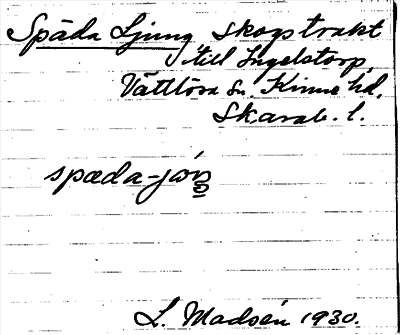 Späda Ljung skogstrakt
till Ingelstorp,
Vättlösa sn. Kinne hd.
Skarab. l.
spæda-jöŋ
L. Madsén 1930.